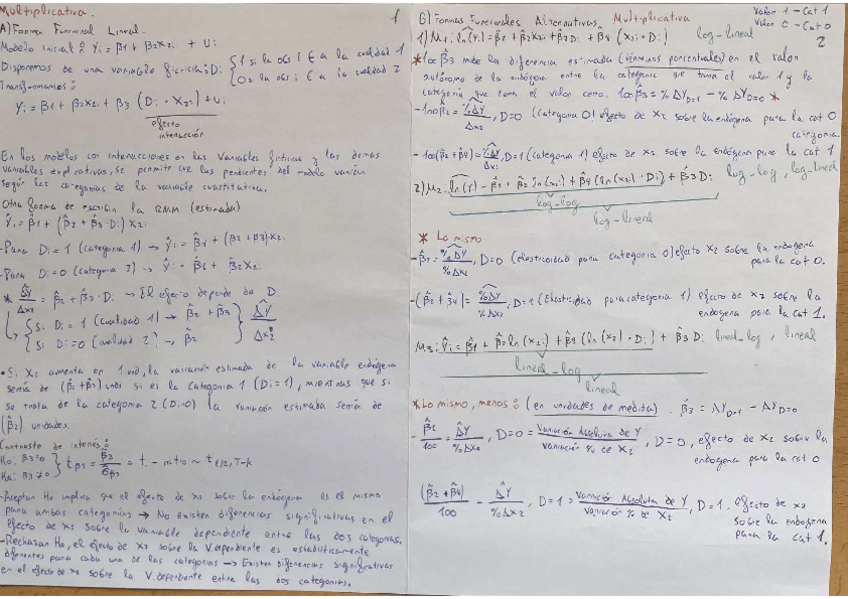 Multiplicativa.
1
A) Forma Funcional Lineal.
Modelo inicial: Yi = β1 + β2X2i + Ui
Disponemos de una variable ficticia: Di { 1 si la obs i ∈ a la cualidad 1
0 si la obs i ∈ a la cualidad 2
Transformamos:
Yi = β1 + β2X2i + β3 (Di · X2i) + ui
efecto
interacción
En los modelos con interacciones en las variables ficticias y las demás
variables explicativas, se permite que las pendientes del modelo varíen
según las categorías de la variable cuantitativa.
Otra forma de escribir la RMM (estimada)
Ŷi = β̂1 + (β̂2 + β̂3 · Di) X2i
- Para Di = 1 (categoría 1) → Ŷi = β̂1 + (β̂2 + β̂3) X2i
- Para Di = 0 (categoría 2) → Ŷi = β̂1 + β̂2X2i
* ΔŶ/ΔX2 = β̂2 + β̂3 · Di → El efecto depende de D.
Si Di = 1 (cualidad 1) → β̂2 + β̂3 } ΔŶ
Si Di = 0 (cualidad 2) → β̂2 } ΔX2
• Si X2 aumenta en 1 ud, la variación estimada de la variable endógena
sería de (β̂2 + β̂3) uds si es la categoría 1 (Di = 1), mientras que si
se trata de la categoría 2 (Di=0) la variación estimada sería de
(β̂2) unidades.
Contraste de interés:
Ho: β3 = 0
Ha: β3 ≠ 0 } tβ3 = β̂3/σ̂β3 = t - ratio ~ tε/2, T-k
- Aceptar Ho implica que el efecto de x2 sobre la endógena es el mismo
para ambas categorías → No existen diferencias significativas en el
efecto de x2 sobre la variable dependiente entre las dos categorías.
- Rechazar Ho, el efecto de x2 sobre la V.dependiente es estadísticamente
diferentes para cada una de las categorías → Existen diferencias significativas
en el efecto de x2 sobre la V.dependiente entre las dos categorías.
B) Formas Funcionales Alternativas. Multiplicativa
Valor 1 - Cat 1
Valor 0 - Cat 0
2
1) M1: ln(Y)i = β̂1 + β̂2X2i + β̂3Di + β̂4 (X2i · Di) log-lineal
* 100β̂3 mide la diferencia estimada (términos porcentuales) en el valor
autónomo de la endógena entre la categoría que toma el valor 1 y la
categoría que toma el valor cero. 100β̂3 = %ΔYD=1 - %ΔYD=0 *
- 100β̂2 = %ΔY/ΔX2, D=0 (categoría 0) efecto de x2 sobre la endógena para la cat 0
categoría.
- 100(β̂2 + β̂4) = %ΔY/ΔX2, D=1 (categoría 1) efecto de x2 sobre la endógena para la cat 1
2) M2: ln(Y) = β̂1 + β̂2 ln(x2i) + β̂4 (ln(x2i) · Di) + β̂3 Di log-log, log-lineal
log-log
log-lineal
* Lo mismo
- β̂2 = %ΔY/%ΔX2, D=0 (elasticidad para categoría 0) efecto X2 sobre la endógena
para la cat 0.
- (β̂2 + β̂4) = %ΔY/%ΔX2, D=1 (Elasticidad para categoría 1) efecto de x2 sobre la
endógena para la cat 1.
M3: Ŷi = β̂1 + β̂2 ln(x2i) + β̂4 (ln(x2) · Di) + β̂3 Di lineal-log, lineal
lineal-log
lineal
* Lo mismo, menos: (en unidades de medida). β̂3 = ΔYD=1 - ΔYD=0
- β̂2/100 = ΔŶ/%ΔX2, D=0 = Variación Absoluta de Y/variación % de X2, D=0, efecto de x2 sobre la
endógena para la cat 0
(β̂2 + β̂4)/100 = ΔŶ/%ΔX2, D=1 = Variación Absoluta de Y/Variación % de X2, D=1, efecto de x2
sobre la endógena
para la cat 1.